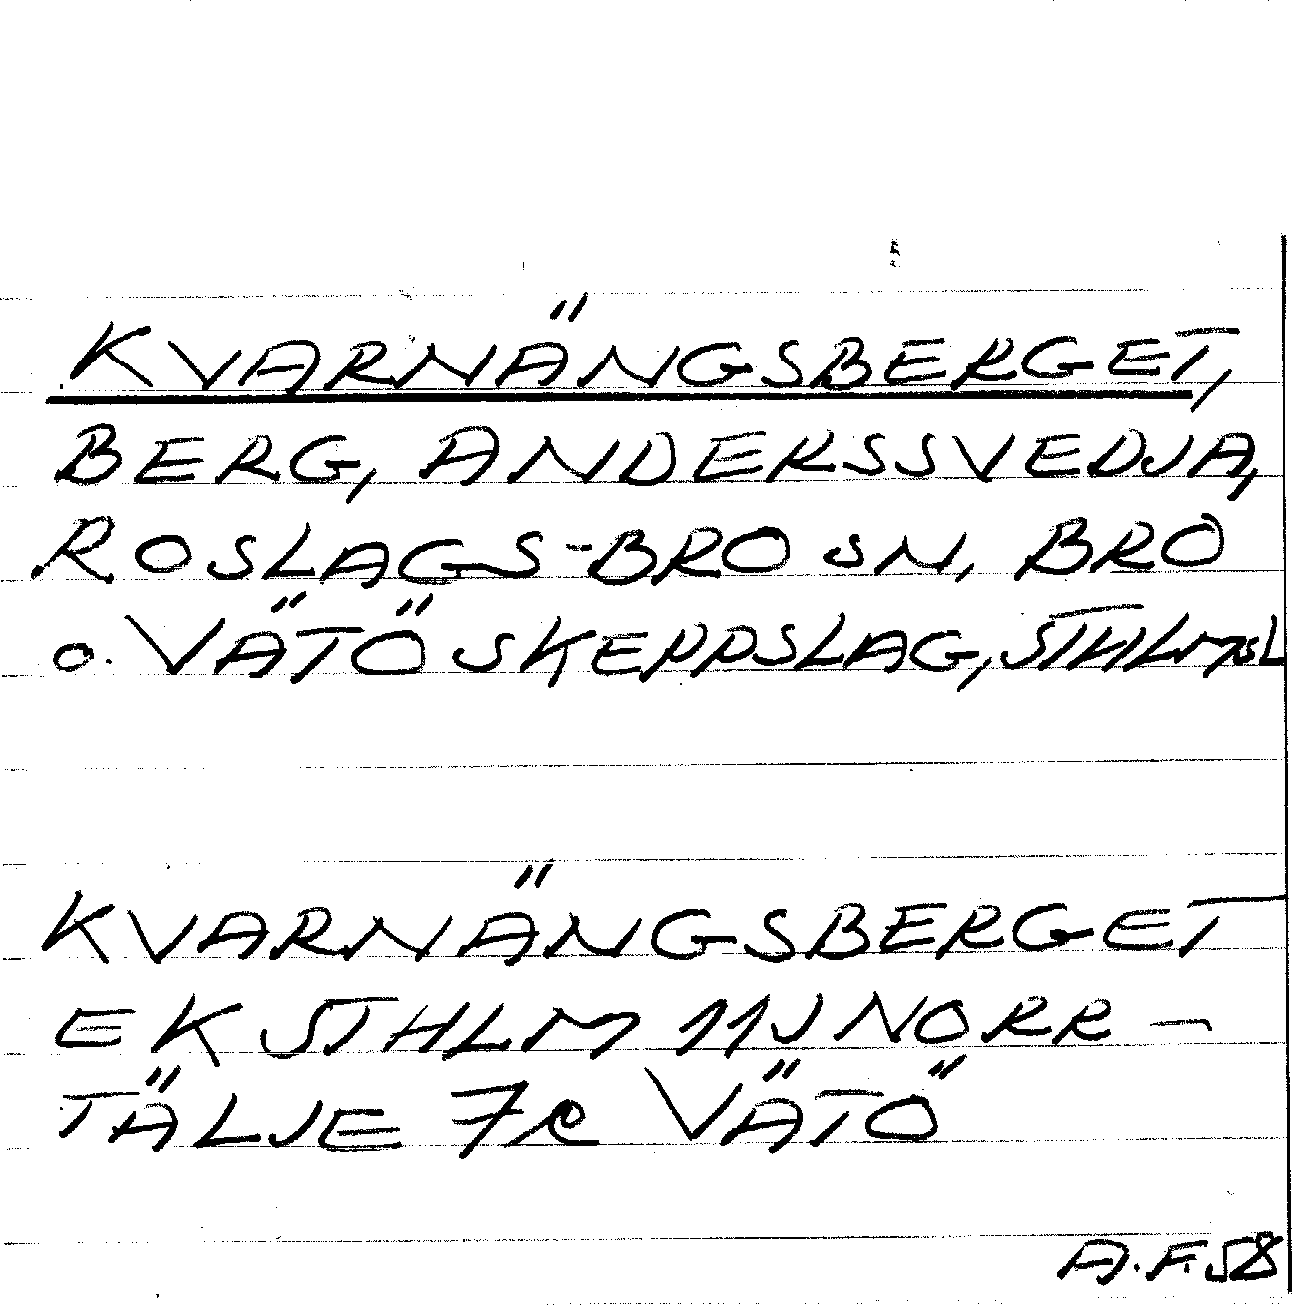 KVARNÄNGSBERGET,
BERG, ANDERSSVEDJA,
ROSLAGS-BRO SN, BRO
O. VÄTÖ SKEPPSLAG, STHLMSL
KVARNÄNGSBERGET
EK STHLM 11J NORR-
TÄLJE 7e VÄTÖ
A.F.58